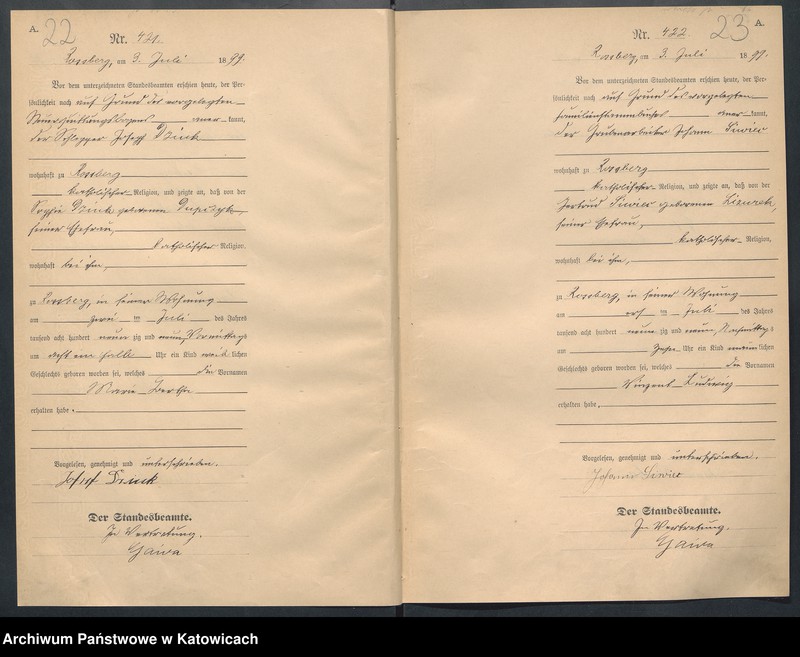 A. 22
Nr. 421.
Rossberg, am 3. Juli 1899.
Vor dem unterzeichneten Standesbeamten erschien heute, der Per-
sönlichkeit nach auf Grund des vorgelegten
aner kannt,
der Schlepper Josef Dziuk
wohnhaft zu Rossberg
katholischer Religion, und zeigte an, daß von der
Sophie Dziuk geborenen
seiner Ehefrau,
katholischer Religion,
wohnhaft bei ihm,
zu Rossberg, in seiner Wohnung
am zwei ten Juli des Jahres
tausend acht hundert neun zig und neun, Vormittags
um acht ein halb Uhr ein Kind weib lichen
Geschlechts geboren worden sei, welches die Vornamen
Marie Bertha
erhalten habe.
Vorgelesen, genehmigt und unterschrieben.
Josef Dziuk
Der Standesbeamte.
In Vertretung.
Gaiva
23 A.
Nr. 422.
Rossberg, am 3. Juli 1899.
Vor dem unterzeichneten Standesbeamten erschien heute, der Per-
sönlichkeit nach auf Grund des vorgelegten
Familienstammbuches aner kannt,
der Grubenarbeiter Johann Siwiec
wohnhaft zu Rossberg
katholischer Religion, und zeigte an, daß von der
Gertrud Siwiec geborenen
seiner Ehefrau,
katholischer Religion,
wohnhaft bei ihm,
zu Rossberg, in seiner Wohnung
am ers ten Juli des Jahres
tausend acht hundert neun zig und neun, Nachmittags
um zehn Uhr ein Kind männ lichen
Geschlechts geboren worden sei, welches die Vornamen
Vinzent Ludwig
erhalten habe.
Vorgelesen, genehmigt und unterschrieben.
Johann Siwiec
Der Standesbeamte.
In Vertretung.
Gaiva
Archiwum Państwowe w Katowicach